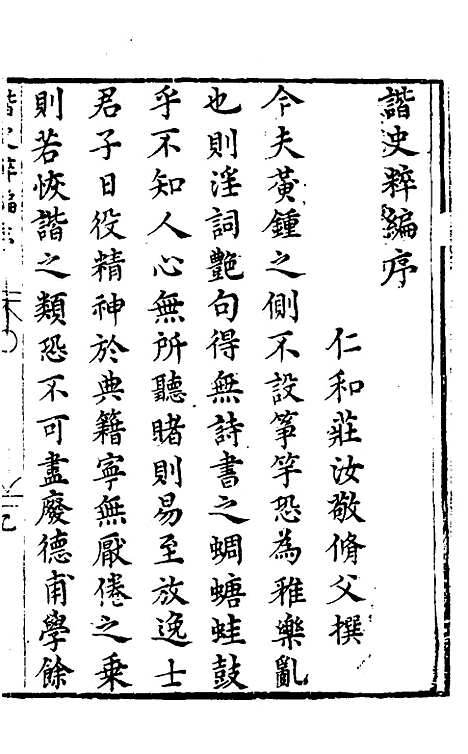 諧史粹編序
仁和莊汝敬脩父撰
今夫黃鍾之側不設箏竽恐為雅樂亂
也則淫詞艷句得無詩書之蜩螗蛙鼓
乎不知人心無所聽睹則易至放逸士
君子日役精神於典籍寧無厭倦之乗
則若恢諧之類恐不可盡廢德甫學餘